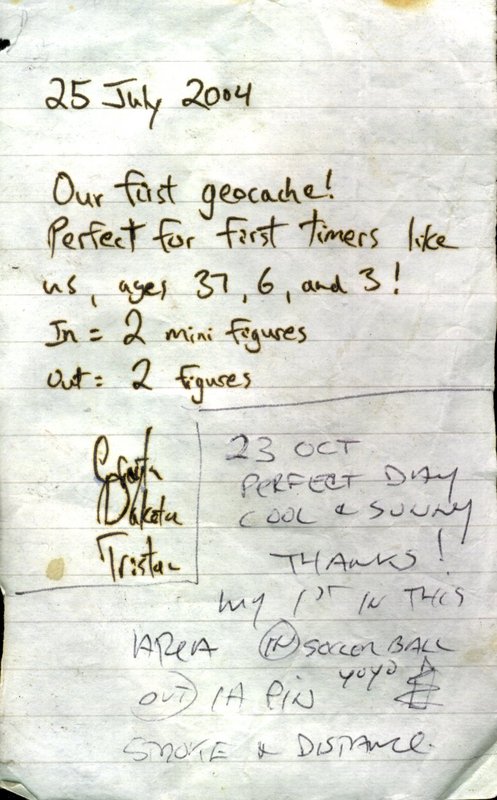 25 July 2004
Our first geocache!
Perfect for first timers like
us, ages 37, 6, and 3!
In = 2 mini figures
out = 2 figures
Dakota
Tristan
23 OCT
PERFECT DAY
COOL & SUNNY
THANKS!
MY 1ST IN THIS
AREA (IN) SOCCER BALL
YOYO
(OUT) IA PIN
SMOKE & DISTANCE.